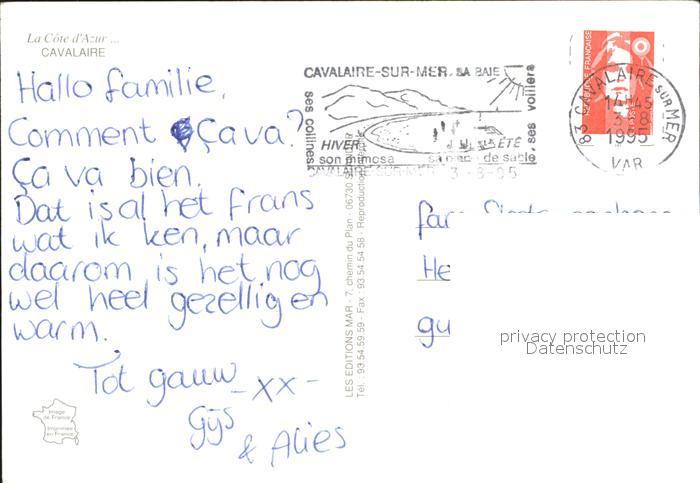 La Côte d'Azur ...
CAVALAIRE
Hallo familie,
Comment Ça va?
Ça va bien.
Dat is al het frans
wat ik ken, maar
daarom is het nog
wel heel gezellig en
warm.
Tot gauw
-xx-
Gijs
& Alies
Image
de France
Imprimée
en France
LES EDITIONS MAR - 7, chemin du Plan - 06730
Tél. 93.54.59.59 - Fax : 93 54 54 58 - Reproduction
CAVALAIRE-SUR-MER, SA BAIE
ses collines
ses voiliers
HIVER
son mimosa
ÉTÉ
sa plage de sable
CAVALAIRE SUR MER 3-8-95
FRANÇAISE
83 CAVALAIRE SUR MER
14H45
3-8
1995
VAR
fam
He
gu
privacy protection
Datenschutz